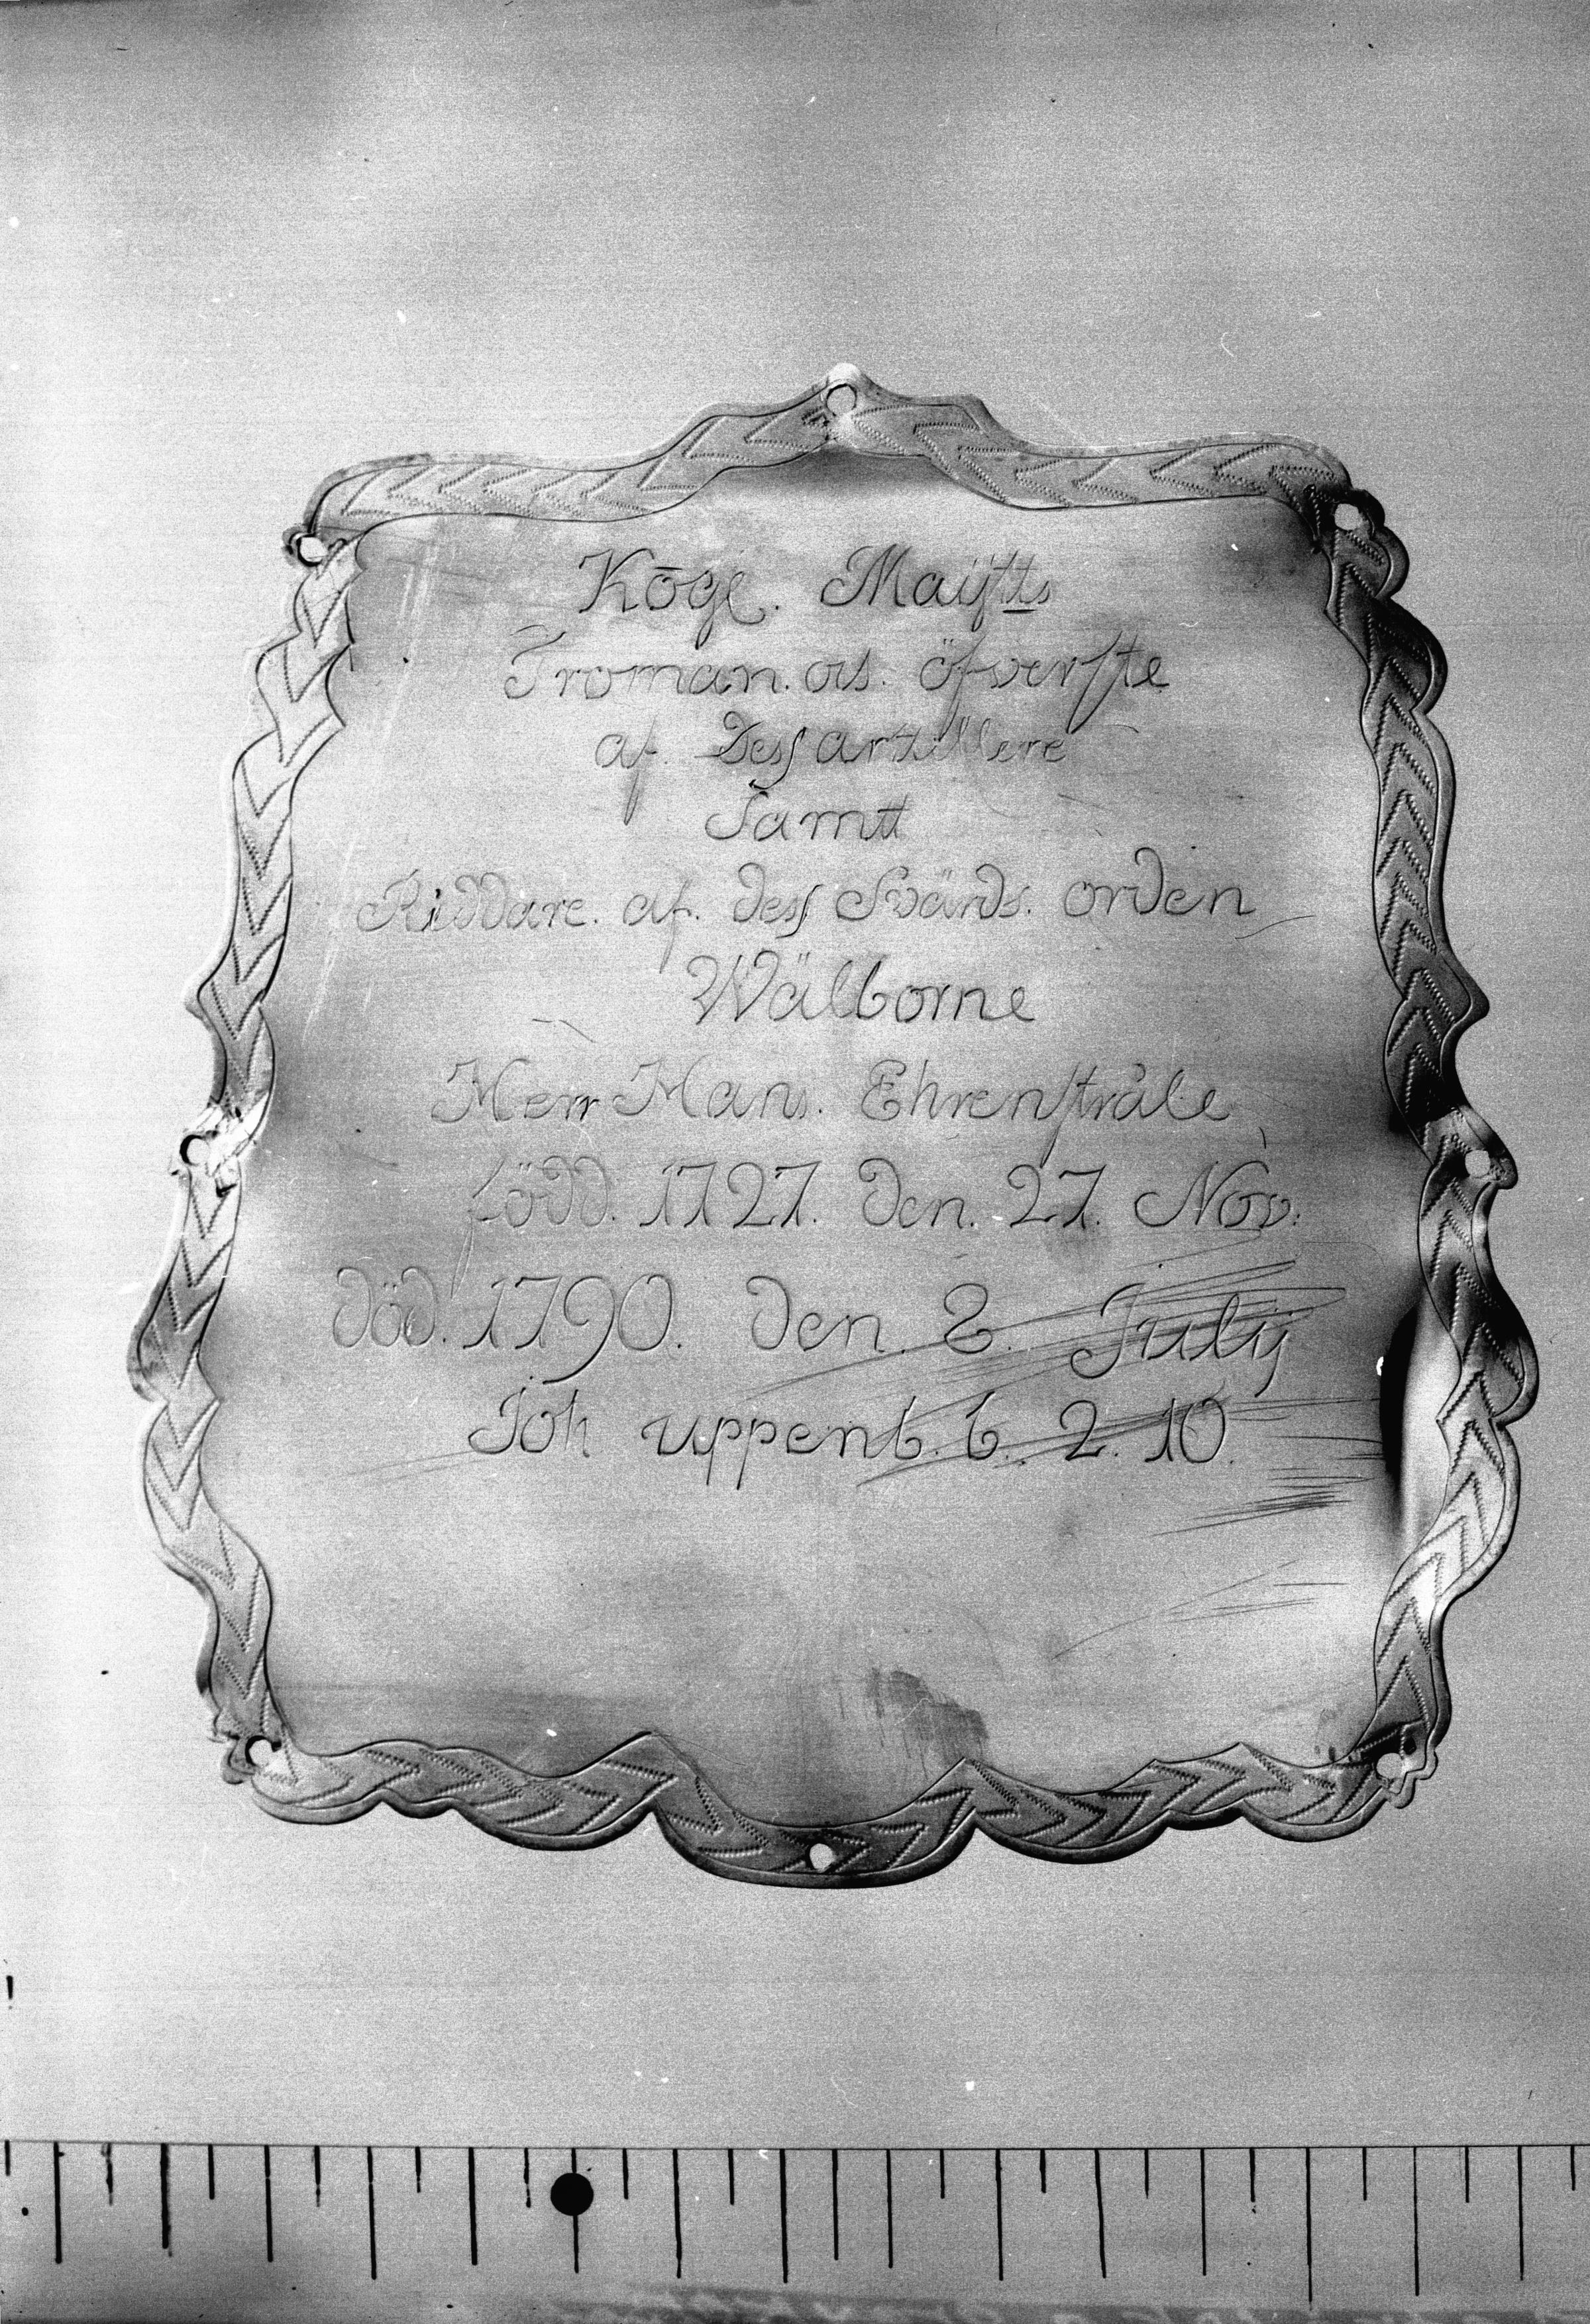 Kōgl. Maijtts
Troman. ock. öfverste
af. Dess artillere
Samtt
Riddare. af. dess Svärds. orden
Wälborne
Herr Hans. Ehrenstråle
född. 1727. den. 27. Nov:
död. 1790. den. 8. July
Joh uppenb. 6. 2. 10.